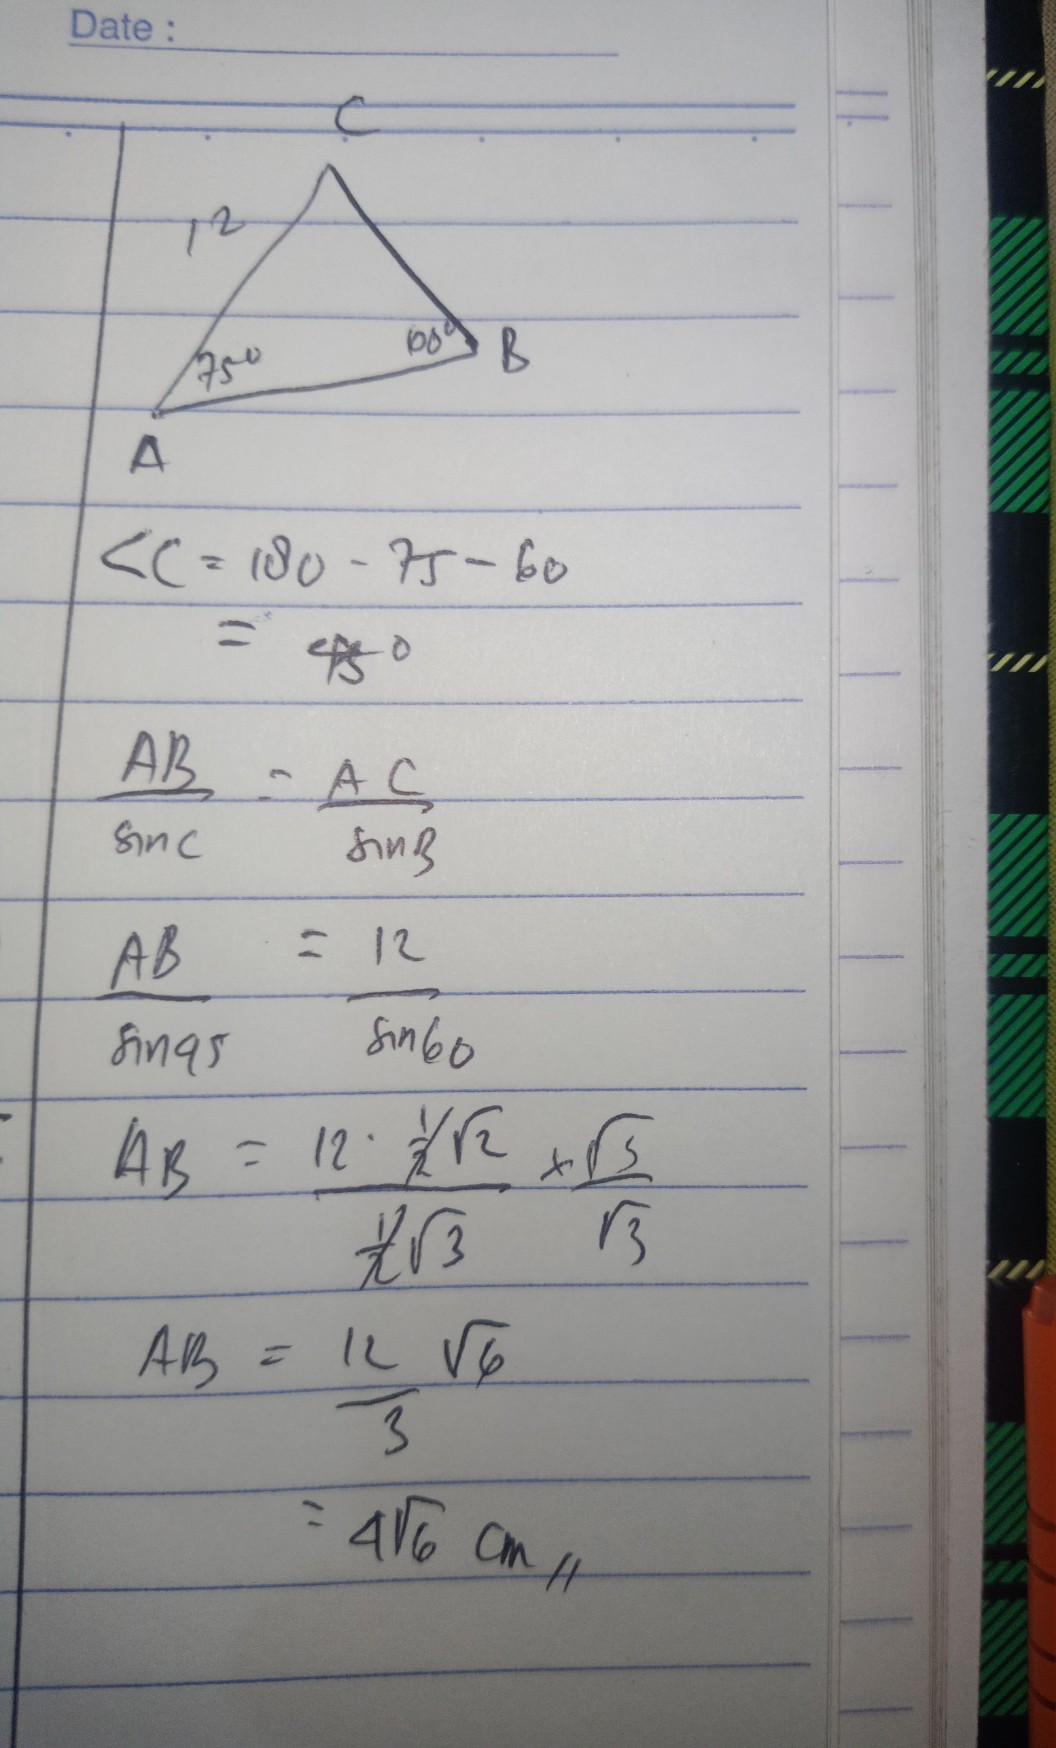 Date :
C
12
75°
60°
B
A
<C = 180 - 75 - 60
= 45°
AB/sin C = AC/sin B
AB/sin 45 = 12/sin 60
AB = 12 · ½√2 / ½√3 × √3/√3
AB = 12/3 √6
= 4√6 cm //